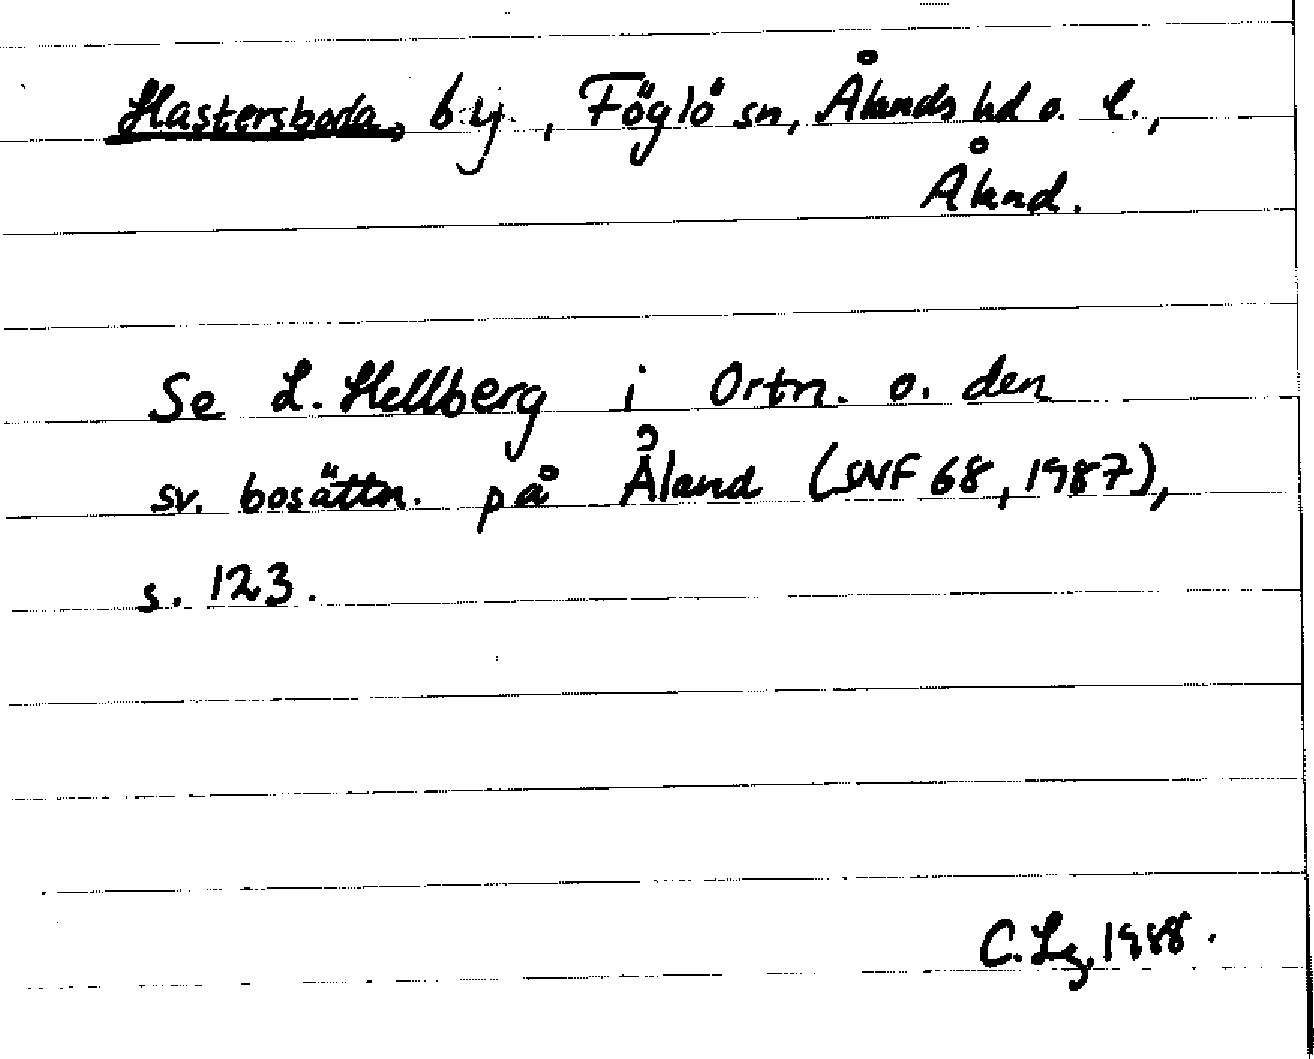 Hastersboda, by, Föglö sn, Ålands hd o. l.,
Åland.
Se L. Hellberg i Ortn. o. den
sv. bosättn. på Åland (SNF 68, 1987),
s. 123.
C. Lg, 1988.